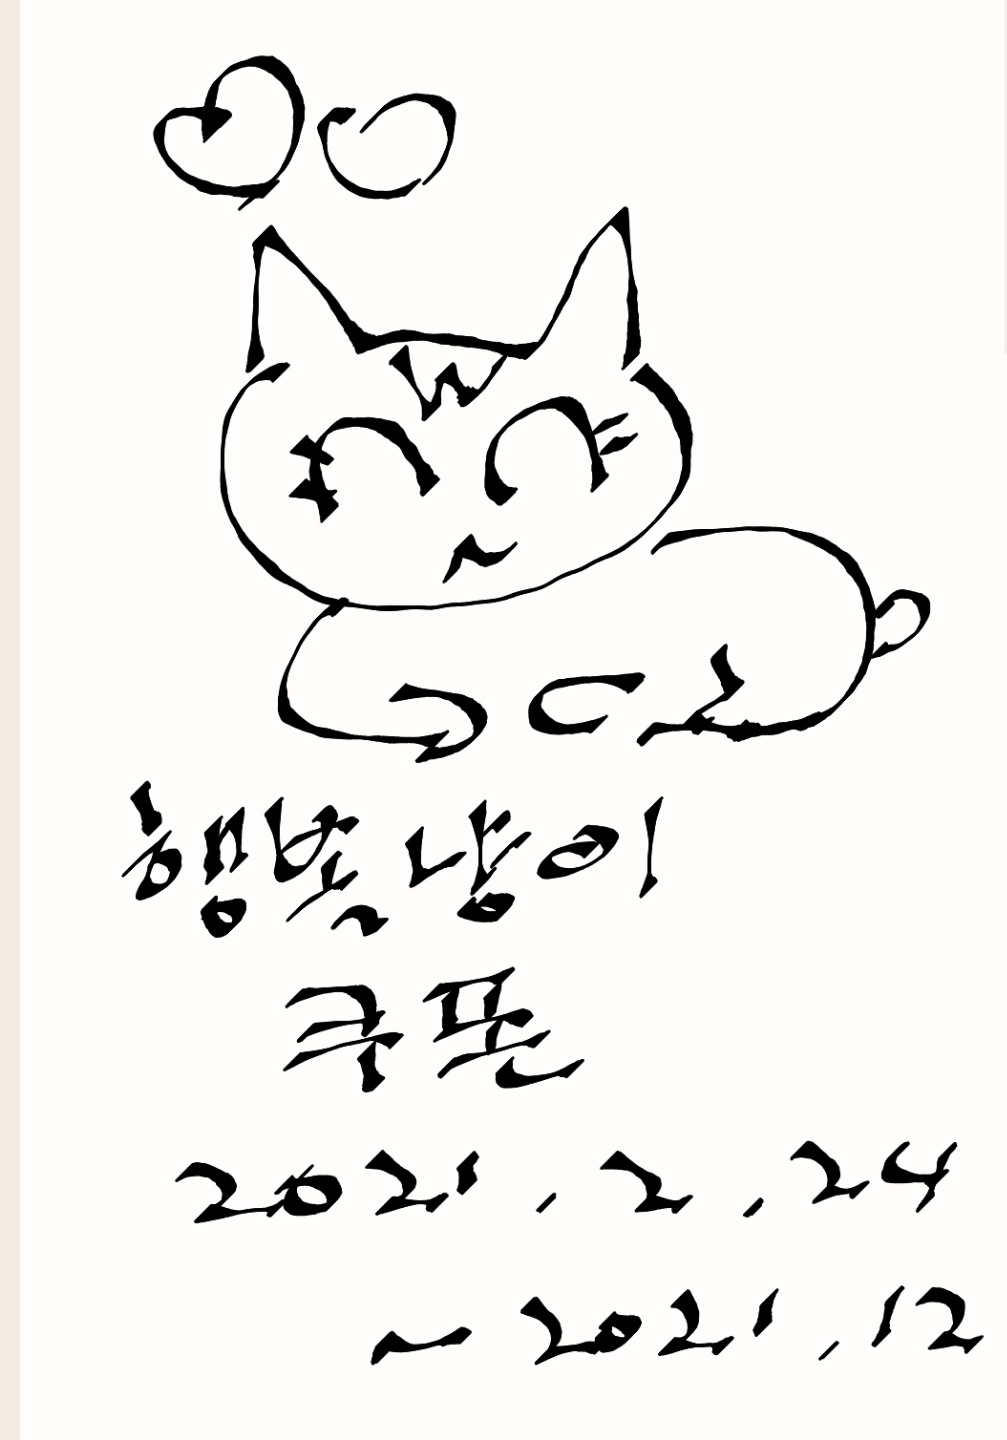 행복냥이
쿠폰
2021.2.24
~2021.12